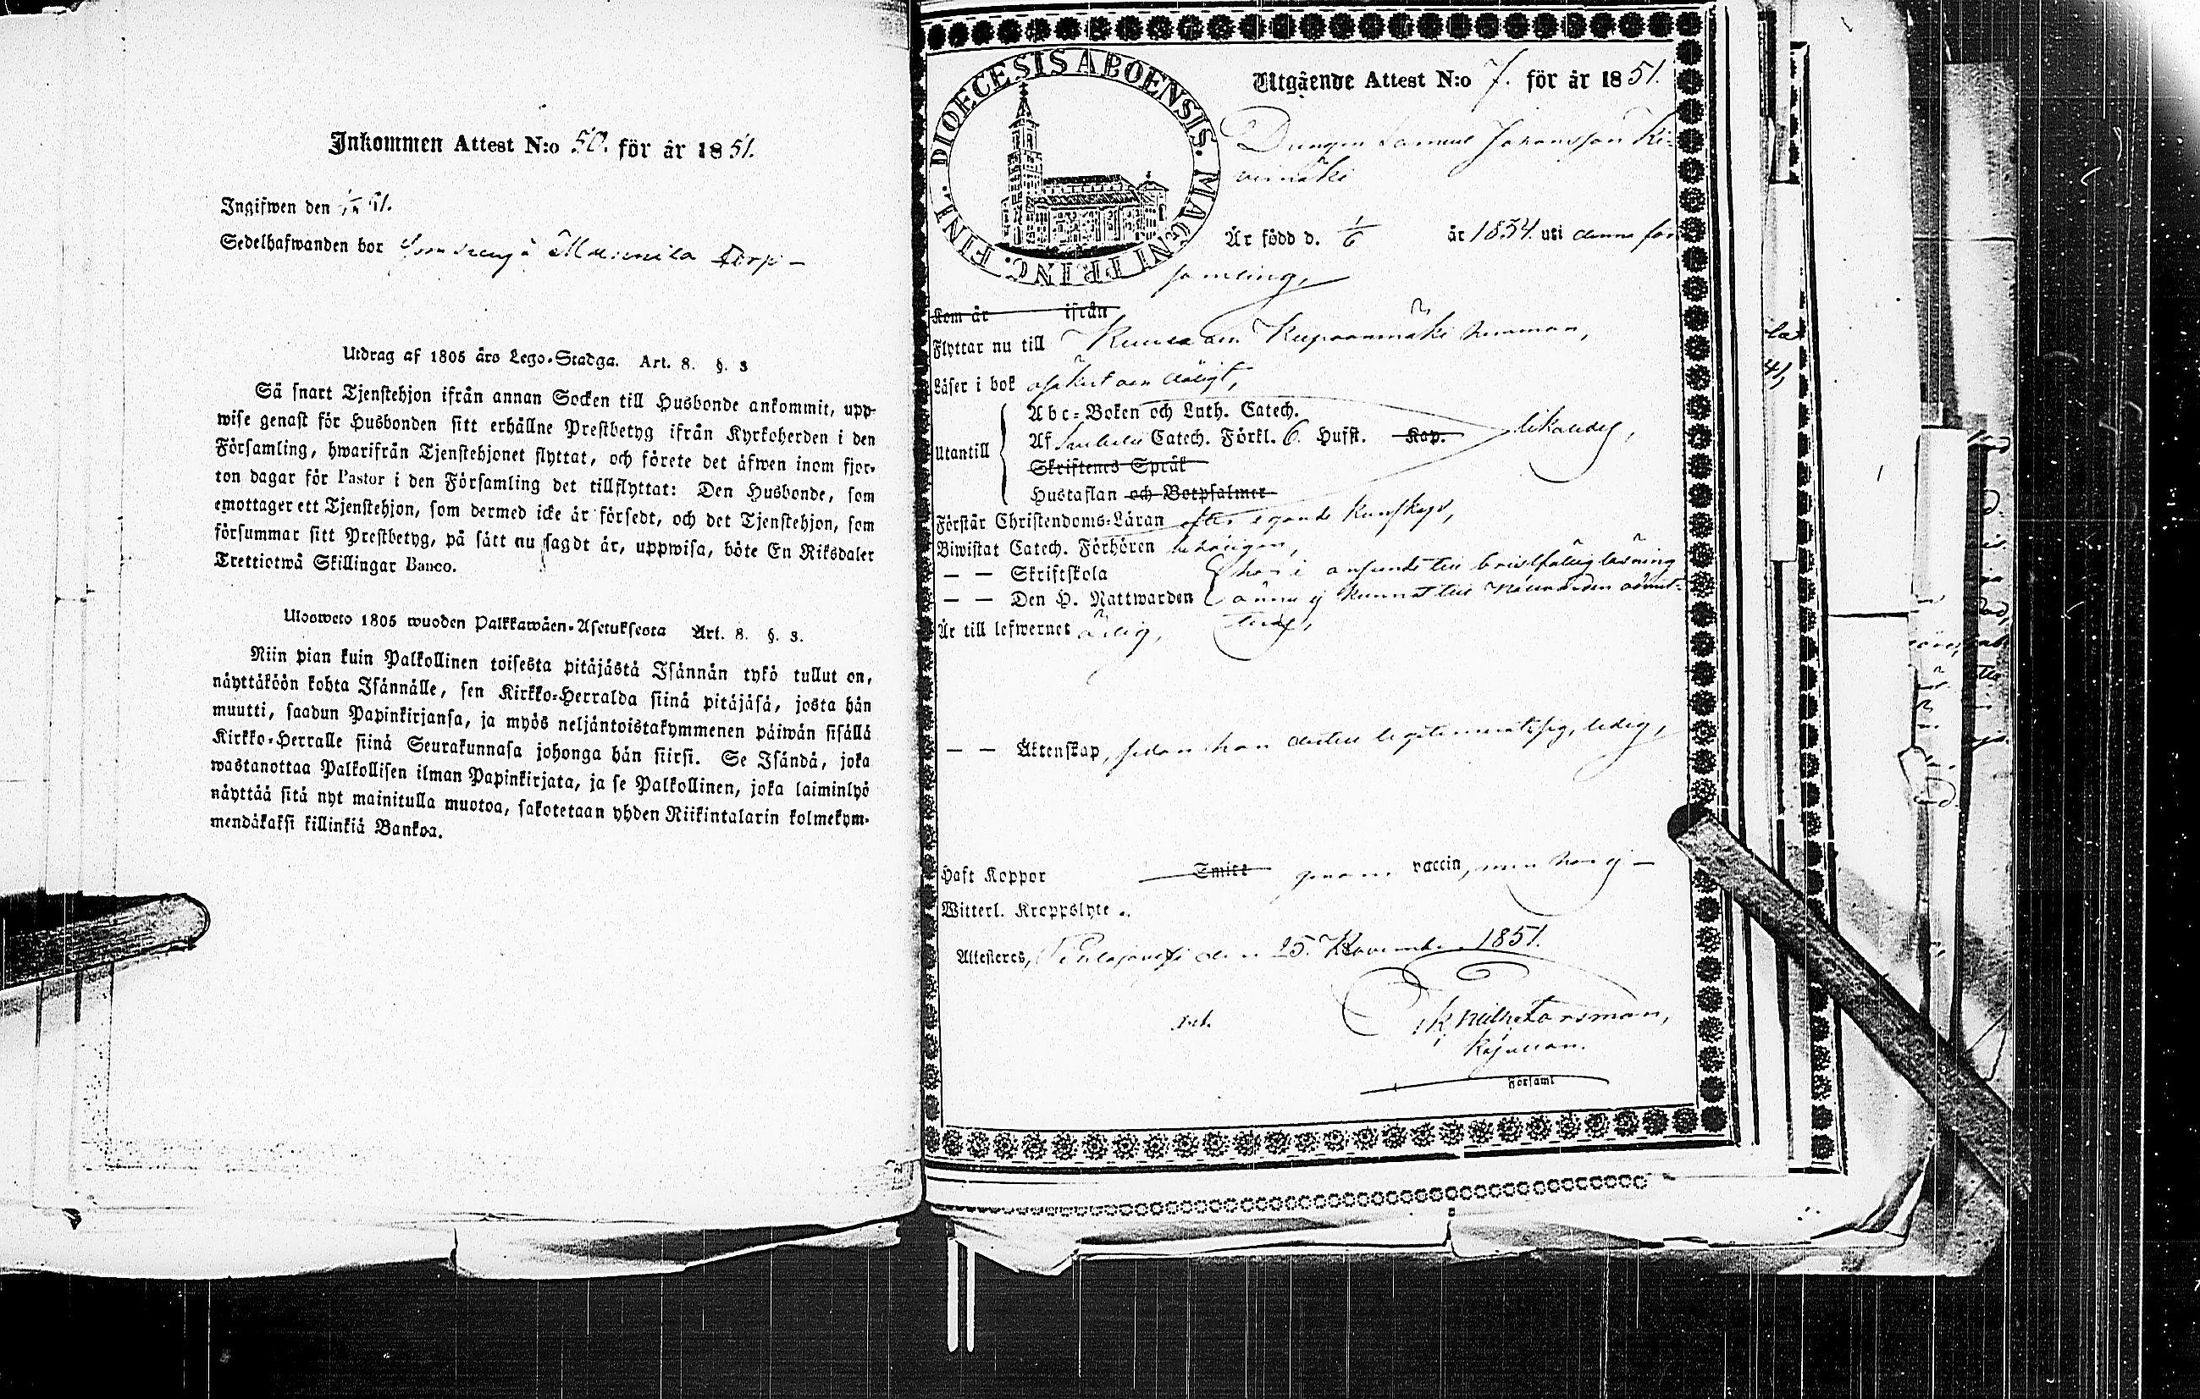 Inkommen Attest N:o 50. för år 1851.
Ingifwen den
Sedelhafwanden bor som dreng å Torp
Utdrag af 1805 års Lego-Stadga. Art. 8. §. 3
Så snart Tjenstehjon ifrån annan Socken till Husbonde ankommit, upp-
wise genast för Husbonden sitt erhållne Prestbetyg ifrån Kyrkoherden i den
Församling, hwarifrån Tjenstehjonet flyttat, och förete det äfwen inom fjor-
ton dagar för Pastor i den Församling det tillflyttat: Den Husbonde, som
emottager ett Tjenstehjon, som dermed icke är försedt, och det Tjenstehjon, som
försummar sitt Prestbetyg, på sätt nu sagdt är, uppwisa, böte En Riksdaler
Trettiotwå Skillingar Banco.
Ulosweto 1805 wuoden Palkkawäen-Asetuksesta Art. 8. §. 3.
Niin pian kuin Palkollinen toisesta pitäjästä Isännän tykö tullut on,
näyttäköön kohta Isännälle, sen Kirkko-Herralda siinä pitäjäsä, josta hän
muutti, saadun Papinkirjansa, ja myös neljäntoistakymmenen päiwän sisällä
Kirkko-Herralle siinä Seurakunnasa johonga hän siirsi. Se Isändä, joka
wastanottaa Palkollisen ilman Papinkirjata, ja se Palkollinen, joka laiminlyö
näyttää sitä nyt mainitulla muotoa, sakotetaan yhden Riikintalarin kolmekym-
mendäkaksi killinkiä Bankoa.
DIOECESIS ABOENSIS. MAGNI PRINC. FINL.
Utgående Attest N:o 7. för år 1851.
Drengen Samuel Johansson Ki-
vimäki
Är född d. 1/6 år 1834. uti denna för-
samling,
Kom år ifrån
Flyttar nu till
Läser i bok
Abc-Boken och Luth. Catech.
Utantill Af Catech. Förkl. 6. Hufst. Kap. likaledes,
Skriftenes Språk
Hustaflan och Botpsalmer
Förstår Christendoms-Läran efter egande kunskap,
Biwistat Catech. Förhören
— — Skriftskola har i anseende till bristfällig läsning
— — Den H. Nattwarden ännu ej kunnat till Nattvarden admit-
Är till lefwernet ärlig, teras,
— — Äktenskap, sedan han dertill legitimerat sig, ledig,
Haft Koppor Smitt genom vaccin, men har ej —
Witterl. Kroppslyte.
Attesteres, den 25. November 1851.
Kapellan.
Församl